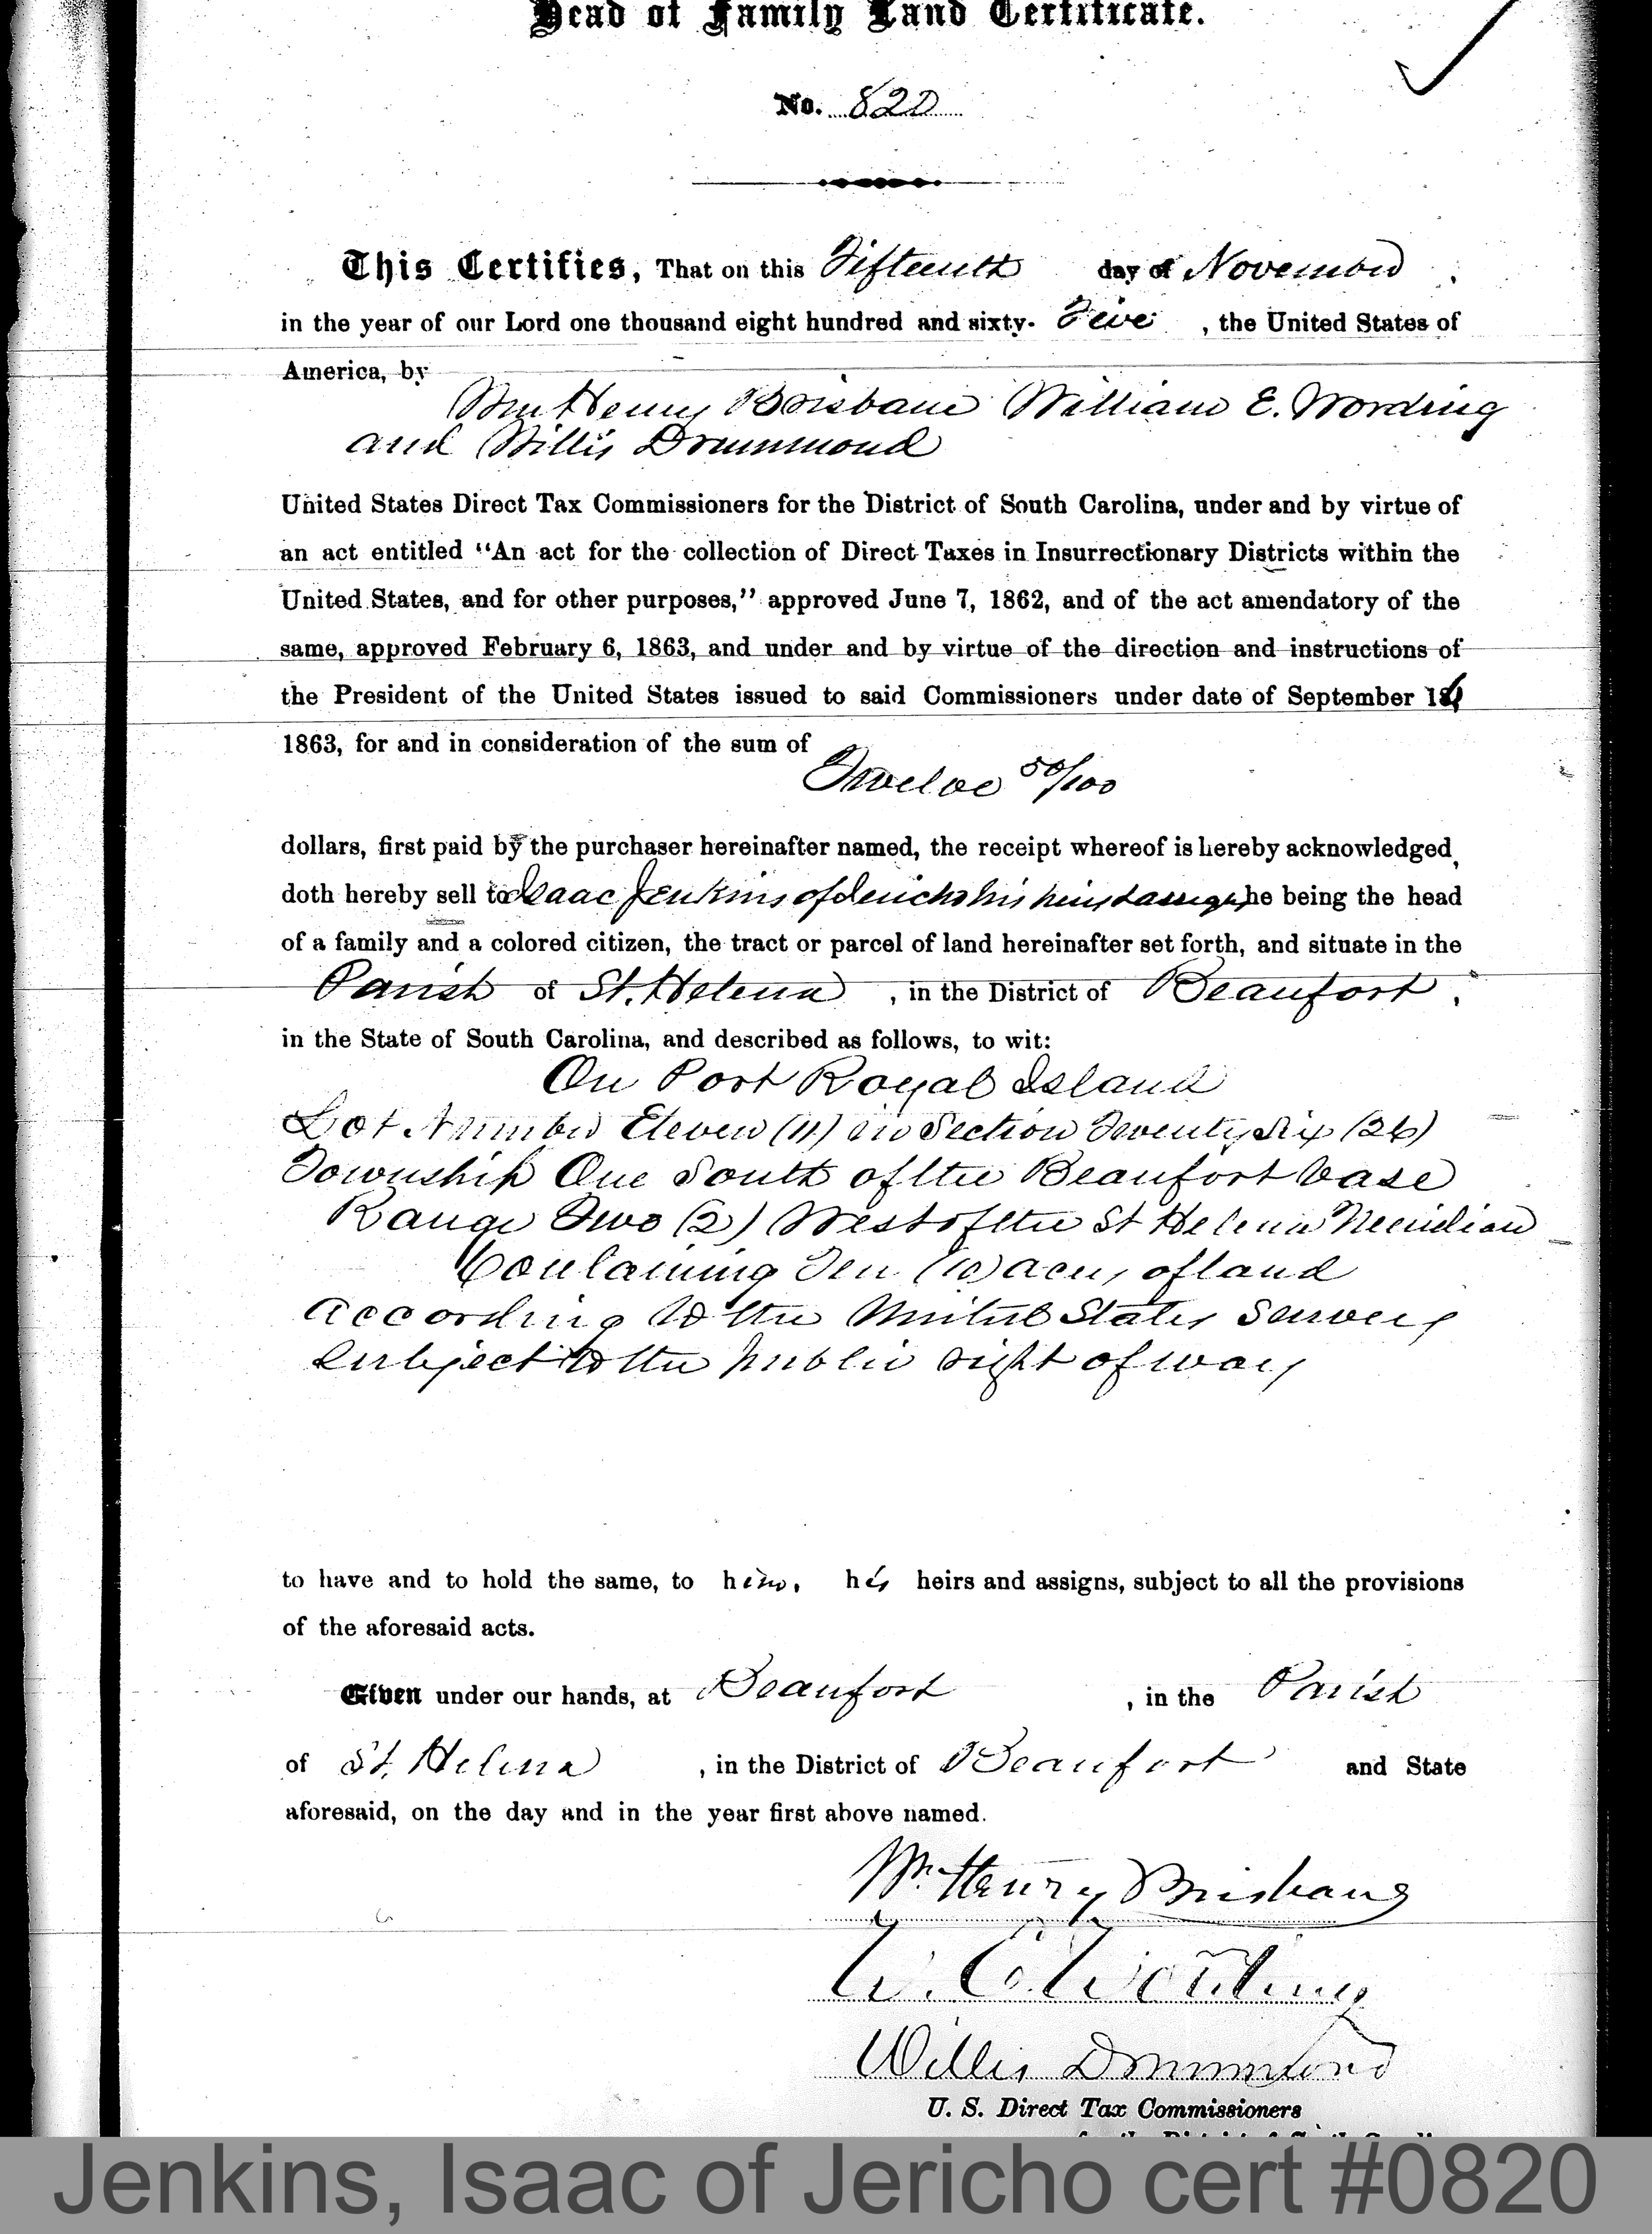 Head of Family Land Certificate.
No. 820
This Certifies, That on this Fifteenth day of November,
in the year of our Lord one thousand eight hundred and sixty-Five, the United States of
America, by
Wm Henry Brisbane William E. Wording
and Willis Drummond
United States Direct Tax Commissioners for the District of South Carolina, under and by virtue of
an act entitled "An act for the collection of Direct Taxes in Insurrectionary Districts within the
United States, and for other purposes," approved June 7, 1862, and of the act amendatory of the
same, approved February 6, 1863, and under and by virtue of the direction and instructions of
the President of the United States issued to said Commissioners under date of September 16
1863, for and in consideration of the sum of
Twelve 50/100
dollars, first paid by the purchaser hereinafter named, the receipt whereof is hereby acknowledged,
doth hereby sell to Isaac Jenkins of Jericho his heirs & assigns, he being the head
of a family and a colored citizen, the tract or parcel of land hereinafter set forth, and situate in the
Parish of St. Helena, in the District of Beaufort,
in the State of South Carolina, and described as follows, to wit:
On Port Royal Island
Lot Number Eleven (11) in Section Twenty Six (26)
Township One South of the Beaufort base
Range Two (2) West of the St Helena Meridian
Containing Ten (10) acres of land
According to the United States Survey
Subject to the public right of way
to have and to hold the same, to him, his heirs and assigns, subject to all the provisions
of the aforesaid acts.
Given under our hands, at Beaufort, in the Parish
of St. Helena, in the District of Beaufort and State
aforesaid, on the day and in the year first above named.
Wm. Henry Brisbane
W. E. Wording
Willis Drummond
U. S. Direct Tax Commissioners
Jenkins, Isaac of Jericho cert #0820